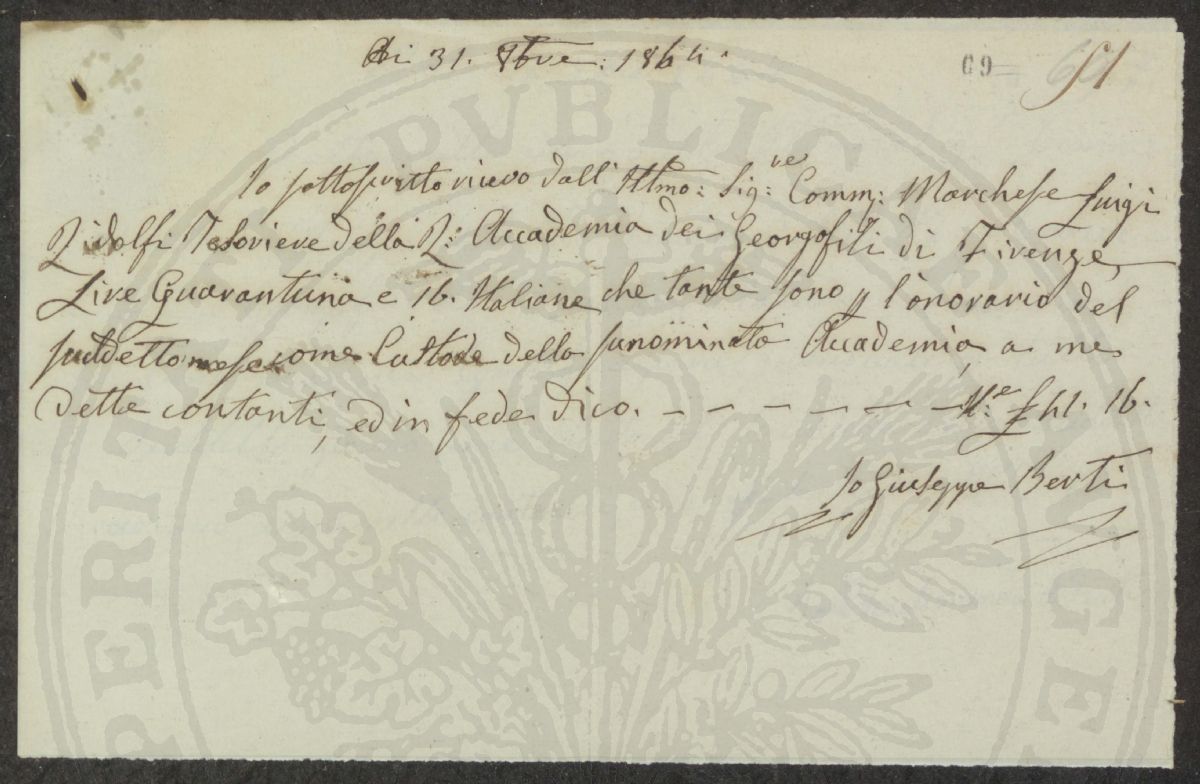 Adi 31. 8bre: 1864.
69 61
Io sottoscritto ricevo dall' Illmo: Sig:re Comm: Marchese Luigi
Ridolfi Tesoriere della R: Accademia dei Georgofili di Firenze
Lire Quarantuna e 16. Italiane che tante sono p l'onorario del
suddetto mese come Custode della sunominata Accademia, a me
dette contanti, ed in fede dico. — — — — — — £ 41. 16.
Io Giuseppe Berti
PERITATI PUBLICAE